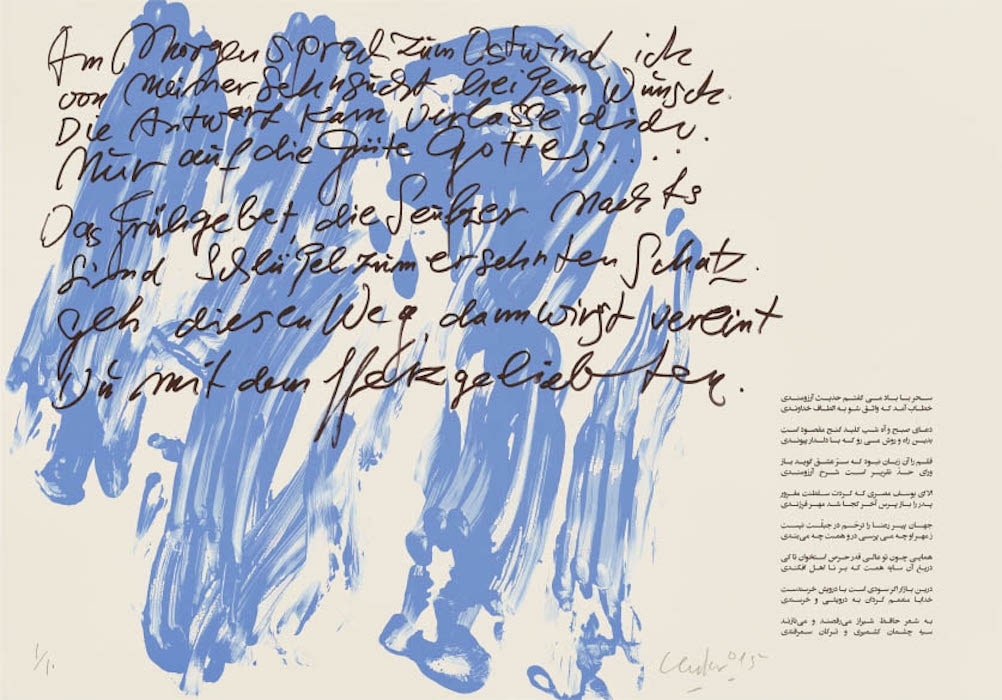 Am Morgen sprach zum Ostwind ich
von meiner Sehnsucht heißem Wunsch.
Die Antwort kam verlasse dich.
Nur auf die Güte Gottes.....
Das Frühgebet, die Seufzer nachts
sind Schlüßel zum ersehnten Schatz.
geh diesen Weg, dann wirst vereint
Du mit dem Herzgeliebten.
سحر با باد می گفتم حدیث آرزومندی
خطاب آمد که واثق شو به الطاف خداوندی
دعای صبح و آه شب کلید گنج مقصود است
بدین راه و روش می رو که با دلدار پیوندی
قلم را آن زبان نبود که سرّ عشق گوید باز
ورای حدّ تقریر است شرح آرزومندی
الا ای یوسف مصری که کردت سلطنت مغرور
پدر را باز پرس آخر کجا شد مهر فرزندی
جهان پیر رعنا را ترحّم در جبلّت نیست
ز مهر او چه می پرسی در و همت چه می‌بندی
همایی چون تو عالی قدر حرص استخوان تا کی
دریغ آن سایه همت که بر نا اهل افکندی
درین بازار اگر سودی است با درویش خرسندست
خدایا منعمم گردان به درویشی و خرسندی
به شعر حافظ شیراز می‌رقصند و می‌نازند
سیه چشمان کشمیری و ترکان سمرقندی